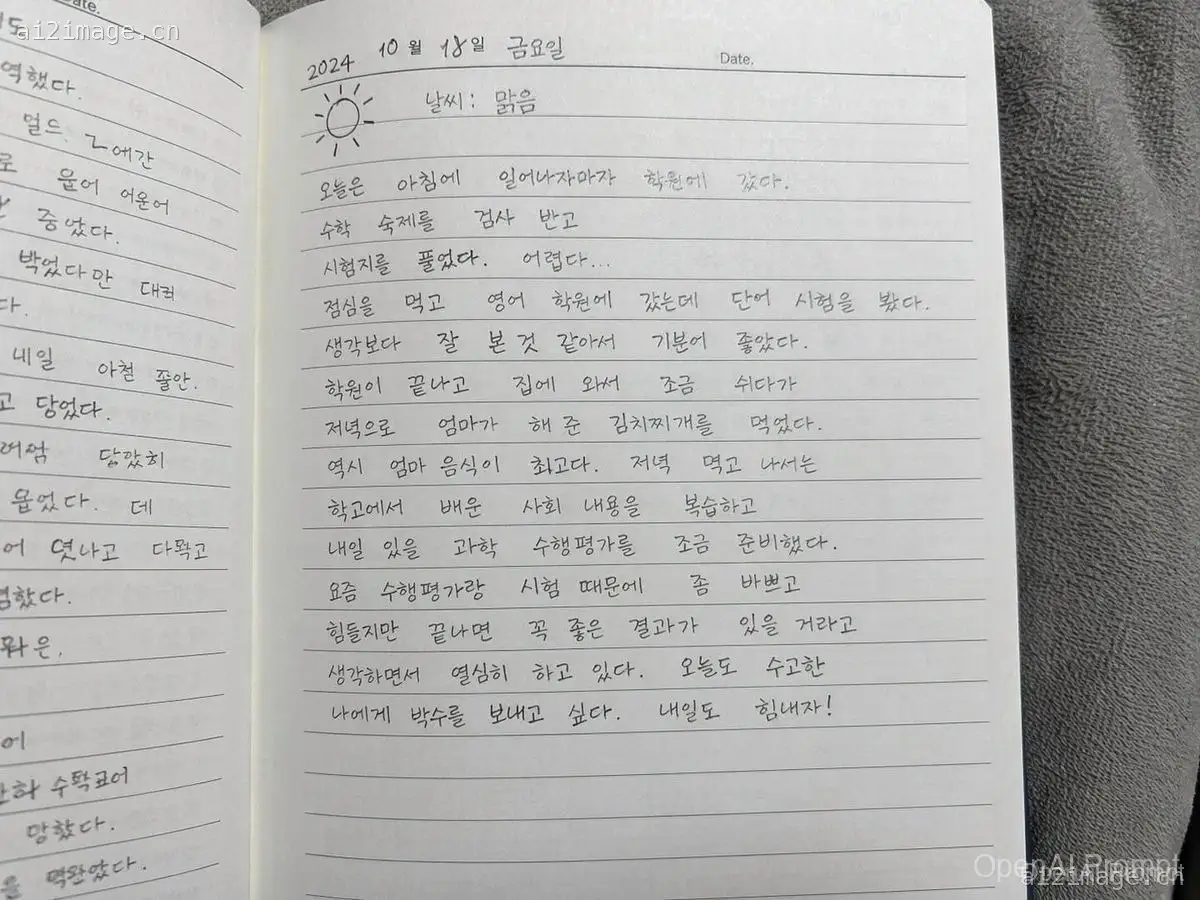 ai2image.cn
2024 10월 18일 금요일
Date.
날씨: 맑음
오늘은 아침에 일어나자마자 학원에 갔다.
수학 숙제를 검사 받고
시험지를 풀었다. 어렵다...
점심을 먹고 영어 학원에 갔는데 단어 시험을 봤다.
생각보다 잘 본 것 같아서 기분이 좋았다.
학원이 끝나고 집에 와서 조금 쉬다가
저녁으로 엄마가 해 준 김치찌개를 먹었다.
역시 엄마 음식이 최고다. 저녁 먹고 나서는
학교에서 배운 사회 내용을 복습하고
내일 있을 과학 수행평가를 조금 준비했다.
요즘 수행평가랑 시험 때문에 좀 바쁘고
힘들지만 끝나면 꼭 좋은 결과가 있을 거라고
생각하면서 열심히 하고 있다. 오늘도 수고한
나에게 박수를 보내고 싶다. 내일도 힘내자!
역했다.
얼드. 에간
윤어 어운어
중었다.
박었다만
다.
내일 아철 졸안.
고 당었다.
당았히
읍었다. 데
어 엿나고
했다.
은.
어
망했다.
을
OpenAI Prompt
ai2image.cn